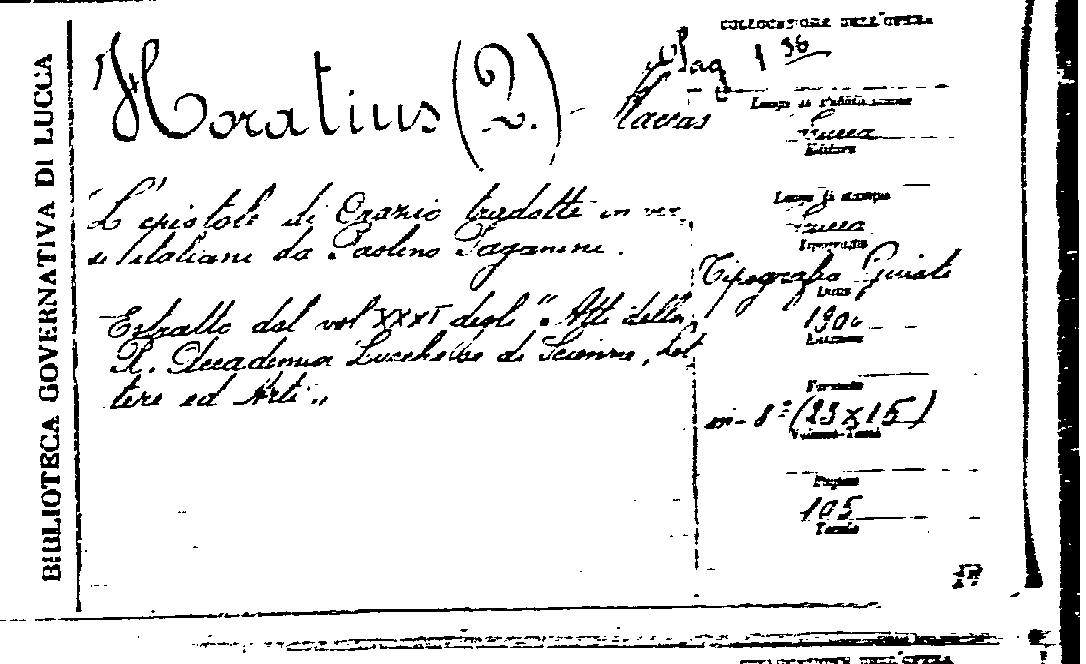 BIBLIOTECA GOVERNATIVA DI LUCCA
Horatius (2.)
L'epistole di Orazio tradotte in ver-
si italiani da Paolino Paganini.
Estratto dal vol XXXI degli "Atti della
R. Accademia Lucchese di Scienze, Let
tere ed Arti"
COLLOCAZIONE DELL'OPERA
Mag 1 36
Luogo di Pubblicazione
Lucca
Editore
Luogo di stampa
Lucca
Tipografia
Tipografia Giusti
Data
Edizione
Formato
in-8º (23x15)
Volumi-Tomi
Pagine
105
Tavole